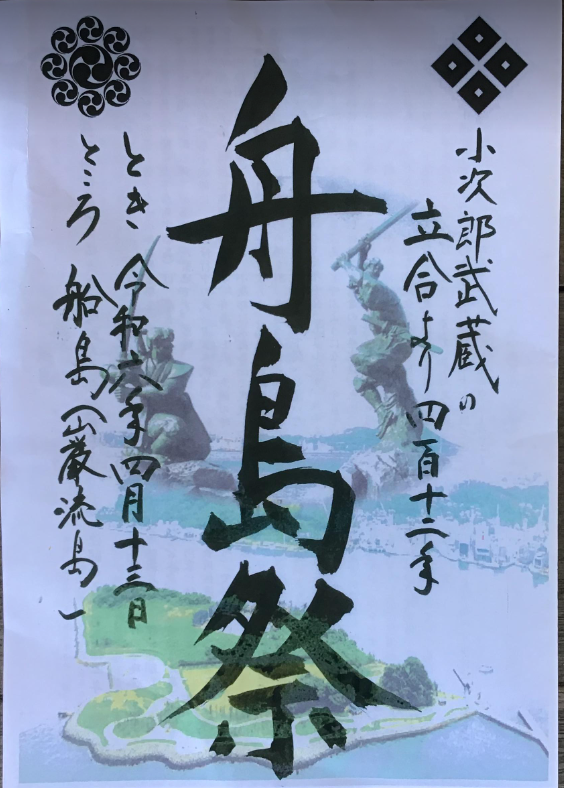 小次郎武蔵の
立合より四百十二年
舟島祭
とき 令和六年四月十三日
ところ 船島(巌流島)